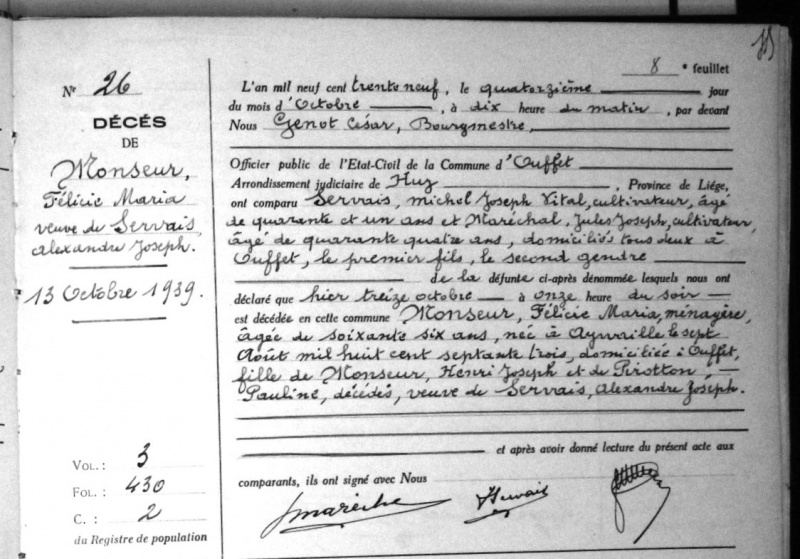 8e feuillet
N° 26
DÉCÈS
DE
Monseur,
Félicie Maria
veuve de Servais,
Alexandre Joseph.
13 Octobre 1939.
VOL. : 3
FOL. : 430
C. : 2
du Registre de population
L'an mil neuf cent trente neuf, le quatorzième jour
du mois d'Octobre, à dix heure du matin, par devant
Nous Genot César, Bourgmestre,
Officier public de l'Etat-Civil de la Commune d'Ouffet
Arrondissement judiciaire de Huy, Province de Liége,
ont comparu Servais, Michel Joseph Vital, cultivateur, âgé
de quarante et un ans et Maréchal, Jules Joseph, cultivateur,
âgé de quarante quatre ans, domiciliés tous deux à
Ouffet, le premier fils, le second gendre
de la défunte ci-après dénommée lesquels nous ont
déclaré que hier treize octobre à onze heure du soir
est décédée en cette commune Monseur, Félicie Maria, ménagère,
âgée de soixante six ans, née à Aywaille le sept
Août mil huit cent septante trois, domiciliée à Ouffet,
fille de Monseur, Henri Joseph et de Pirotton,
Pauline, décédés, veuve de Servais, Alexandre Joseph.
et après avoir donné lecture du présent acte aux
comparants, ils ont signé avec Nous